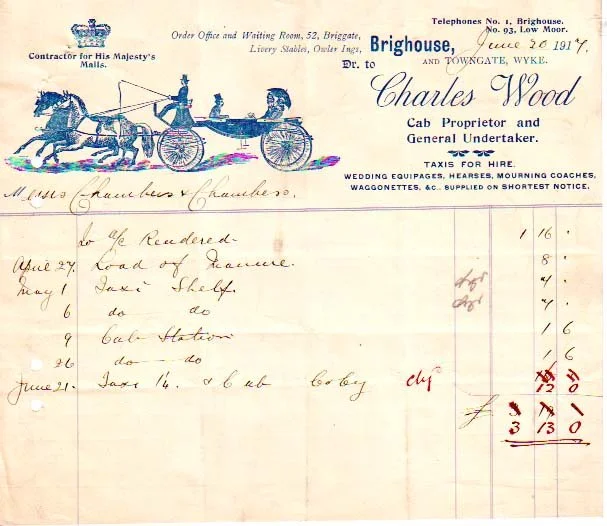 Telephones No. 1, Brighouse.
No. 93, Low Moor.
Order Office and Waiting Room, 52, Briggate,
Livery Stables, Owler Ings,
Brighouse, June 20 1917.
AND TOWNGATE, WYKE.
Contractor for His Majesty's
Mails.
Dr. to
Charles Wood
Cab Proprietor and
General Undertaker.
TAXIS FOR HIRE.
WEDDING EQUIPAGES, HEARSES, MOURNING COACHES,
WAGGONETTES, &C., SUPPLIED ON SHORTEST NOTICE.
Messrs Chambers & Chambers.
To a/c Rendered 1 16 "
April 27. Load of Manure. 8 "
May 1 Taxi Shelf. 4 "
6 do do 4 "
9 Cab Station 1 6
26 do do 1 6
June 21. Taxi & Cab 12 0
£ 3 13 0